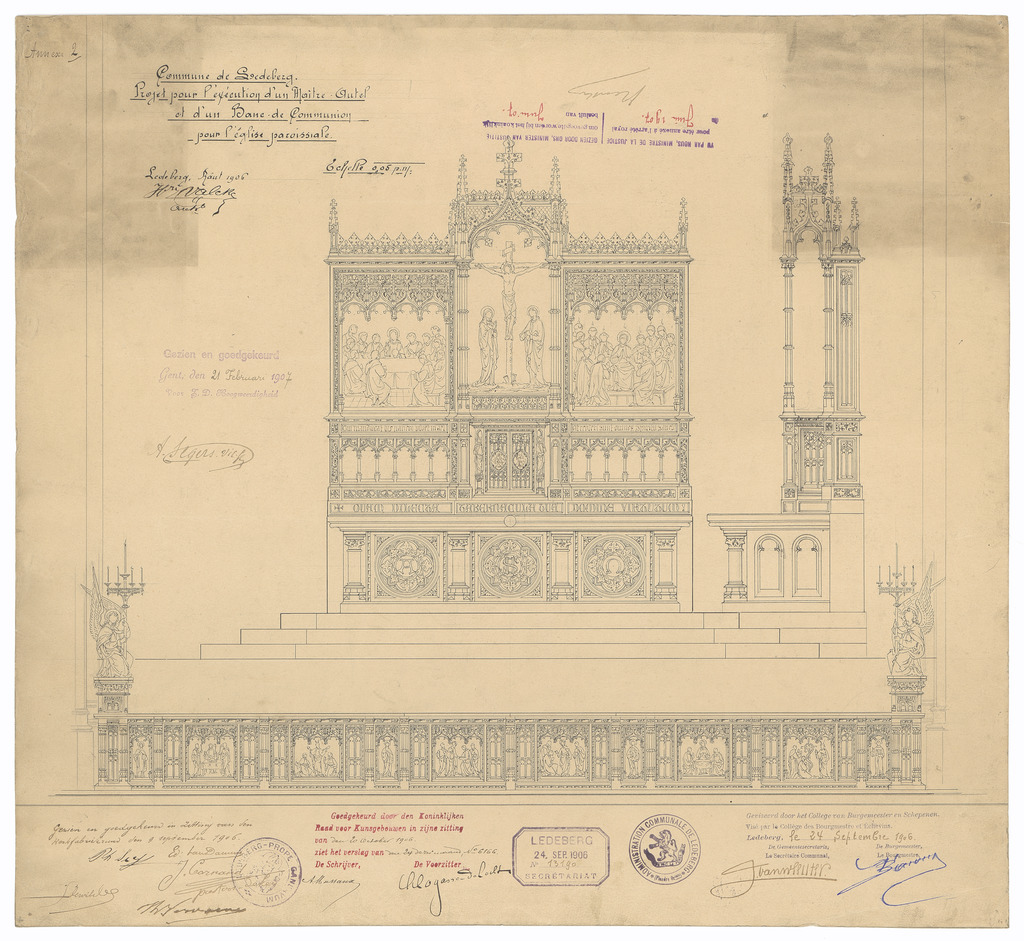 Annexe 2
Commune de Ledeberg.
Projet pour l'exécution d'un Maître-Autel
et d'un Banc-de-Communion
pour l'église paroissiale.
Ledeberg, Août 1906
Echelle 0,05 p.m.
VU PAR NOUS, MINISTRE DE LA JUSTICE
pour être annexé à l'arrêté royal
Juin 1907.
GEZIEN DOOR ONS, MINISTER VAN JUSTITIE
om gevoegd te worden bij het koninklijk
besluit van
Juni 07.
Gezien en goedgekeurd
Gent, den 21 Februari 1907
Voor Z. D. Hoogweerdigheid
QUAM DILECTA TABERNACULA TUA DOMINE VIRTUTUM
A S Ω
Gezien en goedgekeurd in zitting van den
Kerkfabriekraad den 9 september 1906.
Goedgekeurd door den Koninklijken
Raad voor Kunstgebouwen in zijne zitting
van den October 1906
ziet het verslag van
De Schrijver, De Voorzitter,
LEDEBERG
24. SEP. 1906
N°
SECRÉTARIAT
ADMINISTRATION COMMUNALE DE LEDEBERG
Geviseerd door het College van Burgemeester en Schepenen.
Visé par le Collège des Bourgmestre et Echevins.
Ledeberg, le 24 Septembre 1906.
De Gemeentesecretaris, De Burgemeester,
Le Secrétaire Communal, Le Bourgmestre,